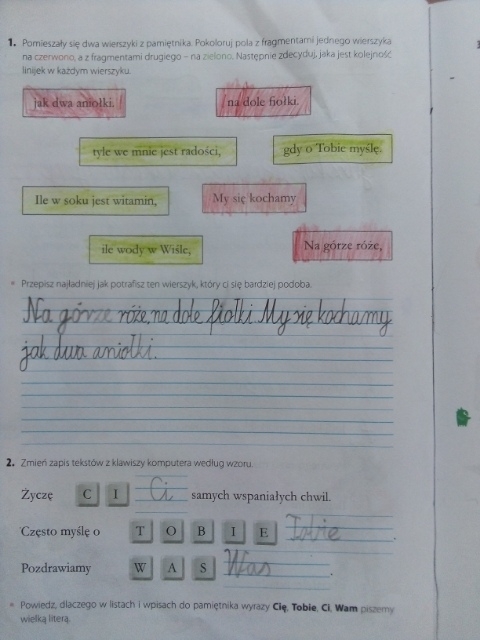 1. Pomieszały się dwa wierszyki z pamiętnika. Pokoloruj pola z fragmentami jednego wierszyka
na czerwono, a z fragmentami drugiego – na zielono. Następnie zdecyduj, jaka jest kolejność
linijek w każdym wierszyku.
jak dwa aniołki. na dole fiołki.
tyle we mnie jest radości, gdy o Tobie myślę.
Ile w soku jest witamin, My się kochamy
ile wody w Wiśle, Na górze róże,
• Przepisz najładniej jak potrafisz ten wierszyk, który ci się bardziej podoba.
Na górze róże, na dole fiołki My się kochamy
jak dwa aniołki.
2. Zmień zapis tekstów z klawiszy komputera według wzoru.
Życzę C I Ci samych wspaniałych chwil.
Często myślę o T O B I E Tobie .
Pozdrawiamy W A S Was .
• Powiedz, dlaczego w listach i wpisach do pamiętnika wyrazy Cię, Tobie, Ci, Wam piszemy
wielką literą.